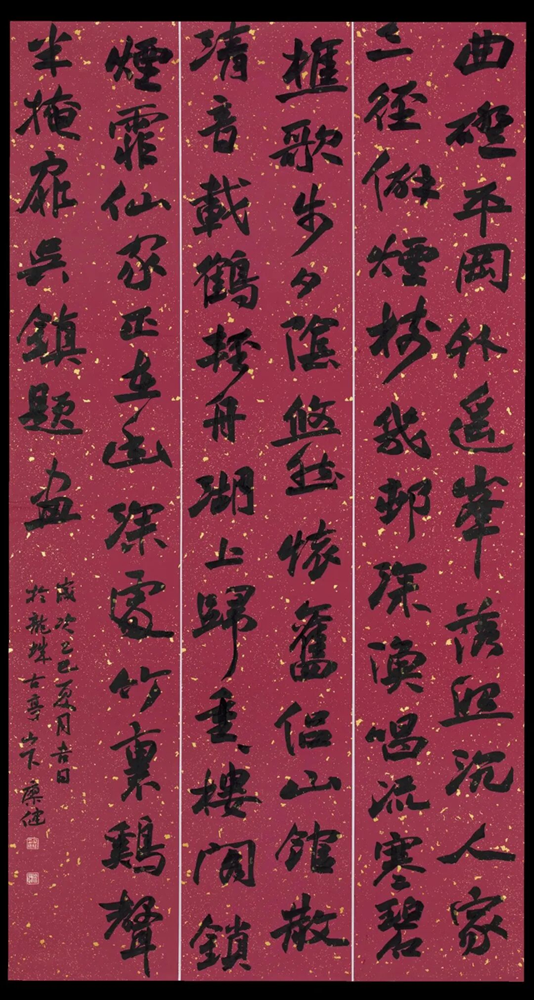 曲磴平岡外遥峯落照沉人家
三徑僻煙樹幾邨深漁唱流寒碧
樵歌步夕陰悠然懷舊侣山館散
清音載鶴輕舟湖上歸重樓閣鎖
煙霏仙家正在幽深處竹裏鷄聲
半掩扉吴鎮題画
歲次乙巳夏月吉日
於龍珠古亭山下廖健